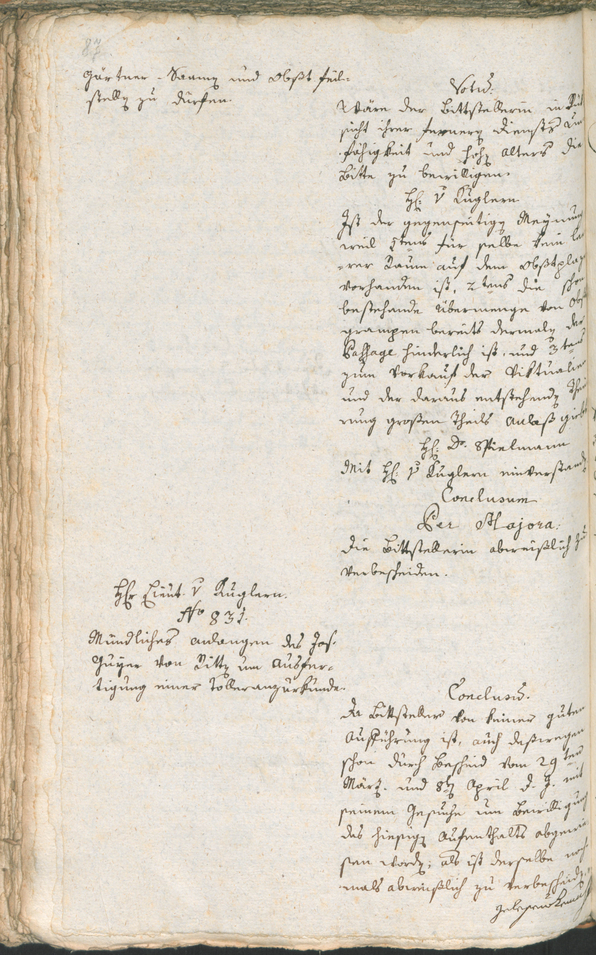 87.
Gärtner-Waaren und Obst feil-
stellen zu dürfen.
Votum:
Wäre der Bittstellerin in Rück
sicht ihrer fernern Dienstes Un
fähigkeit und hohen Alters die
Bitte zu bewilligen.
H: v Kuglern
Ist der gegenseitigen Meynung
weil 1tens für selbe kein lee
rer Raum auf dem Obstplaz
vorhanden ist, 2tens die schon
bestehende Übermenge von Obst
bereits dermalen der
Passage hinderlich ist, und 3tens
zum Vorkauf der Viktualien
und der daraus entstehenden Theu
rung großen Theils Anlaß giebt
H: Dr. Spielmann
Mit H: v Kuglern einverstanden
Conclusum
Per Majora:
Die Bittstellerin abweißlich zu
verbescheiden.
Hr Lieut. v Kuglern.
No 831.
Mündliches Anlangen des Jos.
von um Ausfer-
tigung einer Tolleranzurkunde.
Conclusum.
Da Bittsteller von keiner guten
Aufführung ist, auch deßwegen
schon durch Bescheid vom 29ten
März. und 8ten April d. J. mit
seinem Gesuche um Bewilligung
des hiesigen Aufenthalts abgewie
sen worden; als ist derselbe noch
mals abweißlich zu verbescheiden.